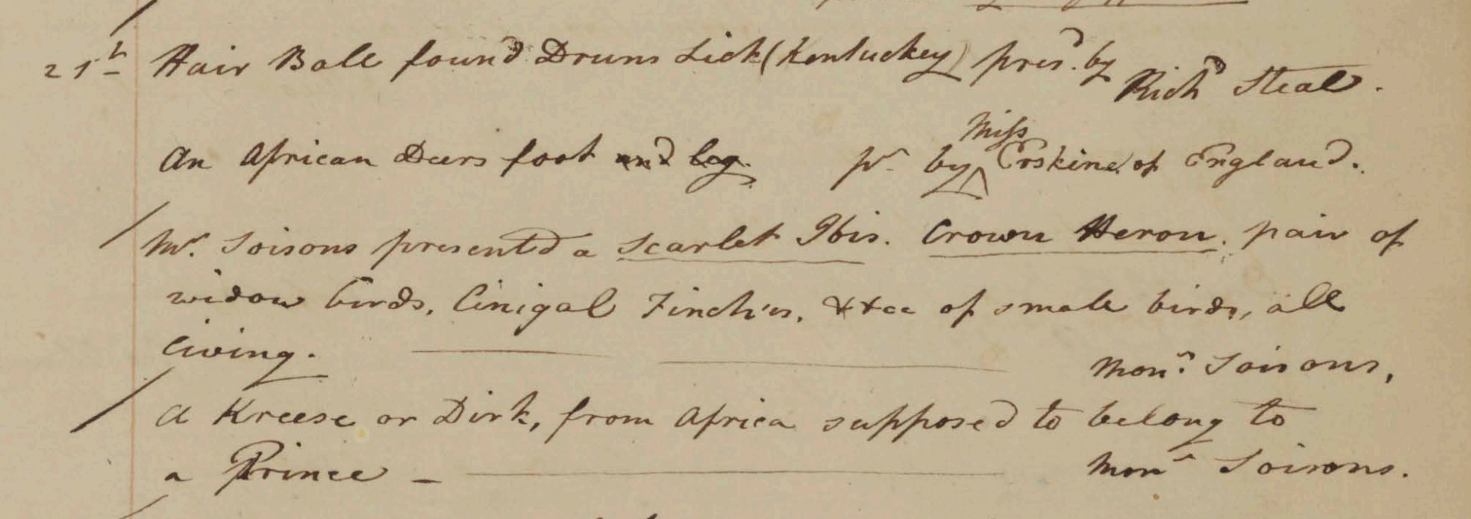 21st Hair Ball found Druns Lick (Kentuckey) presd. by Richd Steal.
An African Deers foot and leg. pr. by Miss Erskine of England.
Mr. Soisons presentd a Scarlet Ibis. Crown Heron. pair of
widow birds, Cinigal Finches, &&cc of small birds, all
living. Monr. Soisons,
A Kreese or Dirk, from Africa supposed to belong to
a Prince — Monr Soisons.